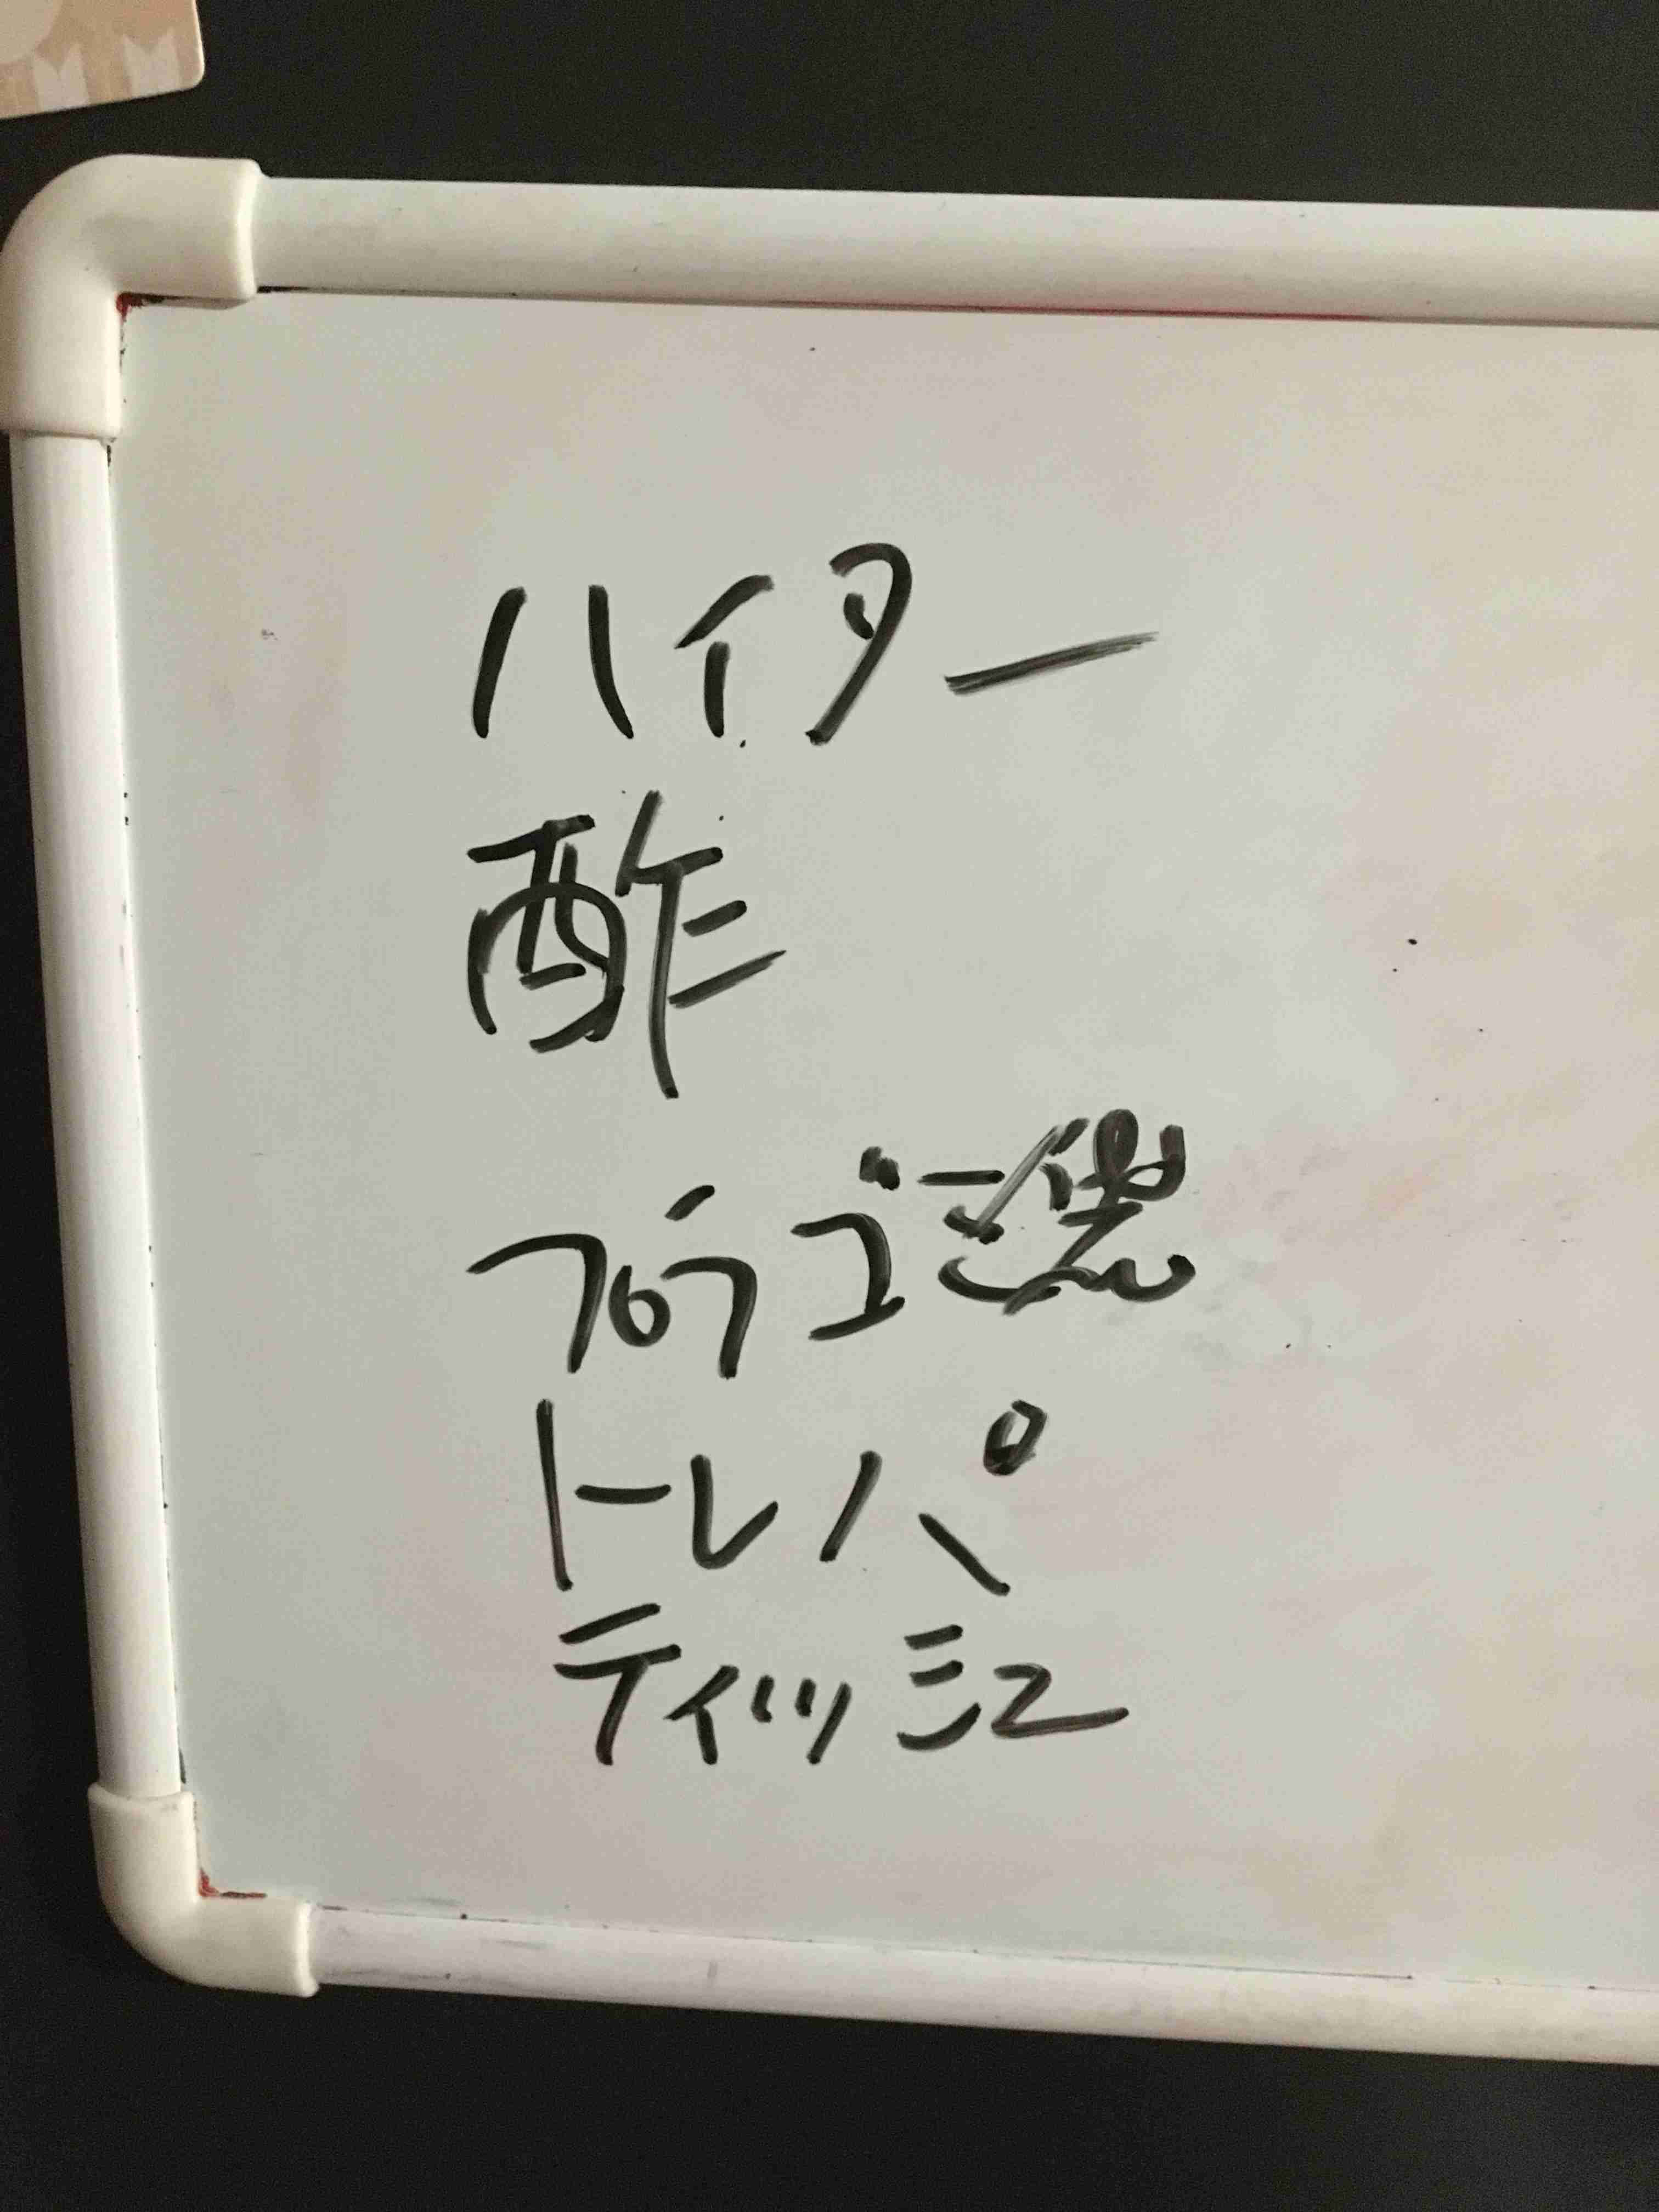 ハイター
酢
プラゴミ袋
トレパ
ティッシュ